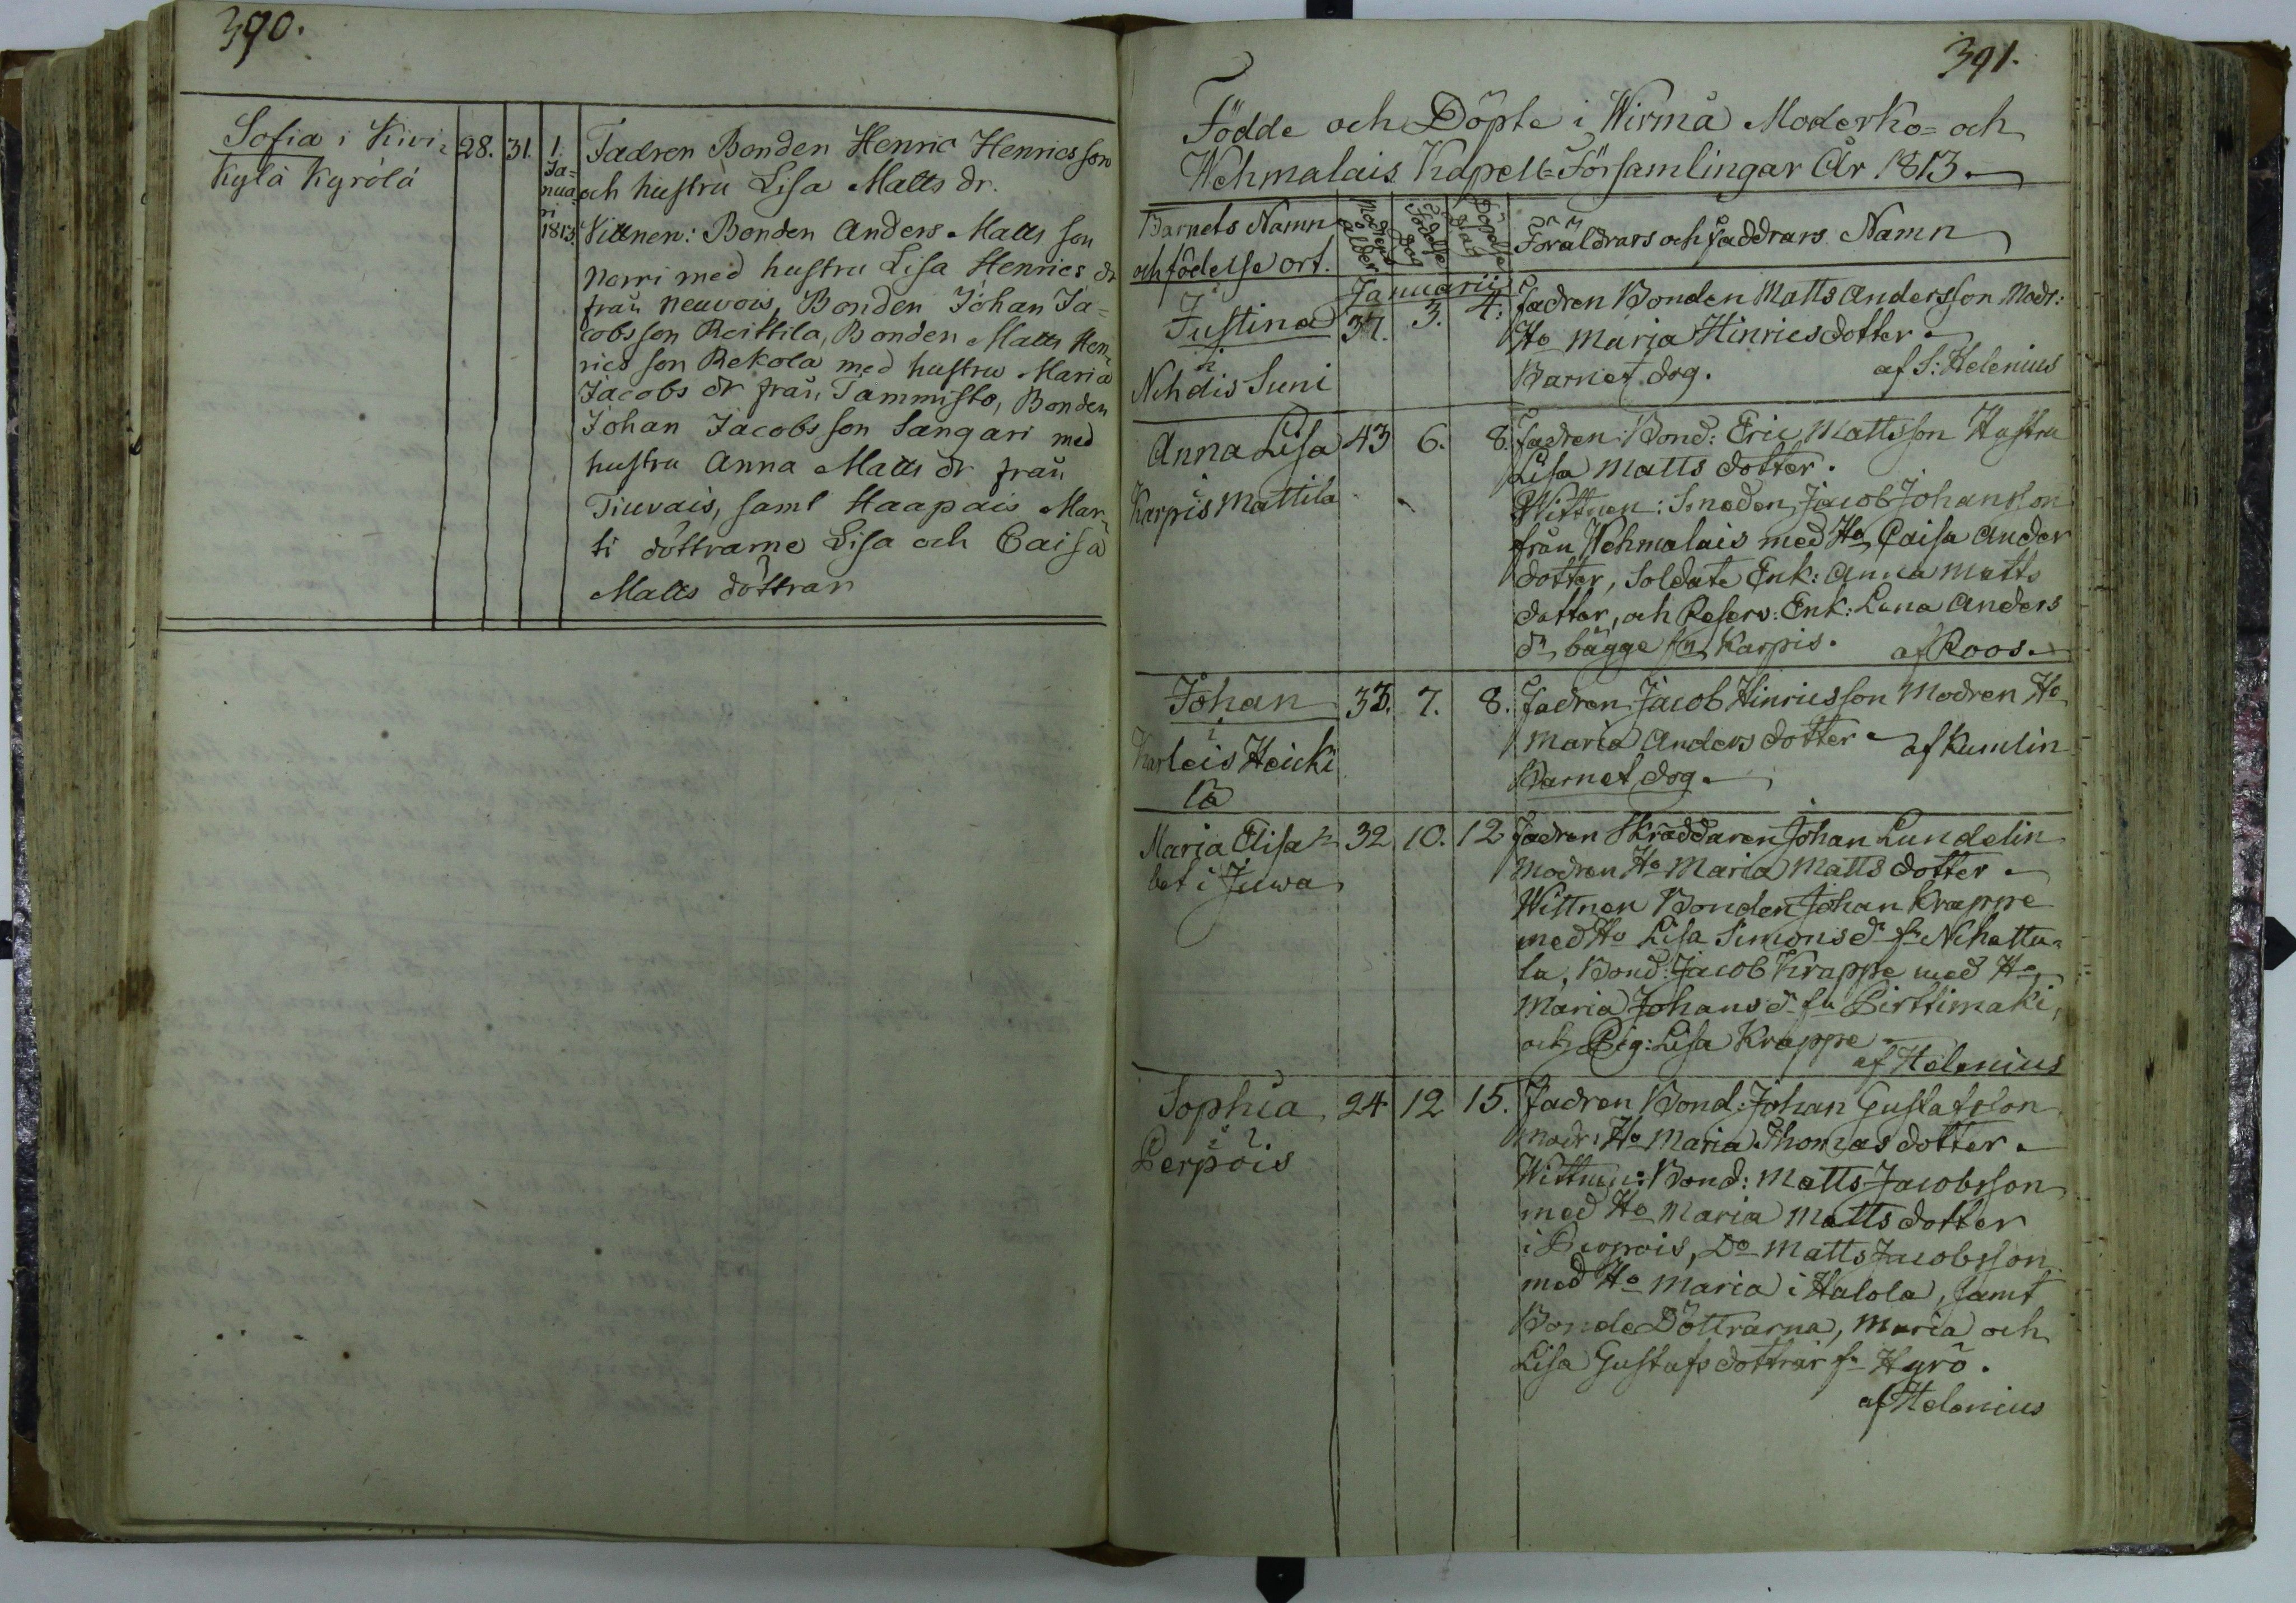 390.
Sofia i Kivi=
kylä Kyrölä
28. 31. 1. Ja=
nua
ri
1813.
Fadren Bonden Henric Henricsson
och hustru Lisa Matts dr.
Vittnen: Bonden Anders Matts son
Norri med hustru Lisa Henrics dr
från Neuvois, Bonden Johan Ja=
cobsson Reittila, Bonden Matts Hen=
rics son Rekola med hustru Maria
Jacobs dr från Tammisto, Bonden
Johan Jacobs son Sangari med
hustru Anna Matts dr från
Tiuvais, samt Haapais Mar=
ti döttrarne Lisa och Caisa
Matts döttrar
391.
Födde och Döpte i Wirmå Moderko= och
Wehmalais Kapell=Församlingar År 1813.
Barnets Namn
och födelse ort.
Modrens ålder
Födelse dag
Döpelse dag
Föräldrars och Faddrars Namn
Januarii
Justina
i
Nihdis Suni
37. 3. 4.
Fadren Bonden Matts Andersson Modr:
Ho Maria Hinricsdotter.
Barnet dog. af S: Helenius
Anna Lisa
i
Karpis Mattila
43 6. 8.
Fadren Bond: Eric Mattsson Hustru
Lisa Matts dotter.
Wittnen: Smeden Jacob Johansson
från Wehmalais med Ho Caisa Anders
dotter, Soldate Enk: Anna Matts
dotter, och Reserv: Enk: Lena Anders
dr bägge fn Karpis. af Roos.
Johan
i
Karleis Heicki
lä
33. 7. 8.
Fadren Jacob Hinricsson Modren Ho
Maria Anders dotter af Kumlin
Barnet dog.
Maria Elisa=
bet i Juwa
32 10. 12
Fadren Skräddaren Johan Lundelin
Modren Ho Maria Matts dotter.
Wittnen Bonden Johan Krappe
med Ho Lisa Simons dr fn Nihattu=
la, Bond: Jacob Krappe med Ho
Maria Johans dr fn Pirttimäki,
och Pig: Lisa Krappe
af Helenius
Sophia
i
Perpöis
24 12 15.
Fadren Bond: Johan Gustafsson
Modr: Ho Maria Thomas dotter.
Wittnen: Bond: Matts Jacobsson
med Ho Maria Matts dotter
i Perpois, Do Matts Jacobsson
med Ho Maria i Halola, samt
Bonde Döttrarna, Maria och
Lisa Gustafs döttrar fn Hyrö.
af Helenius